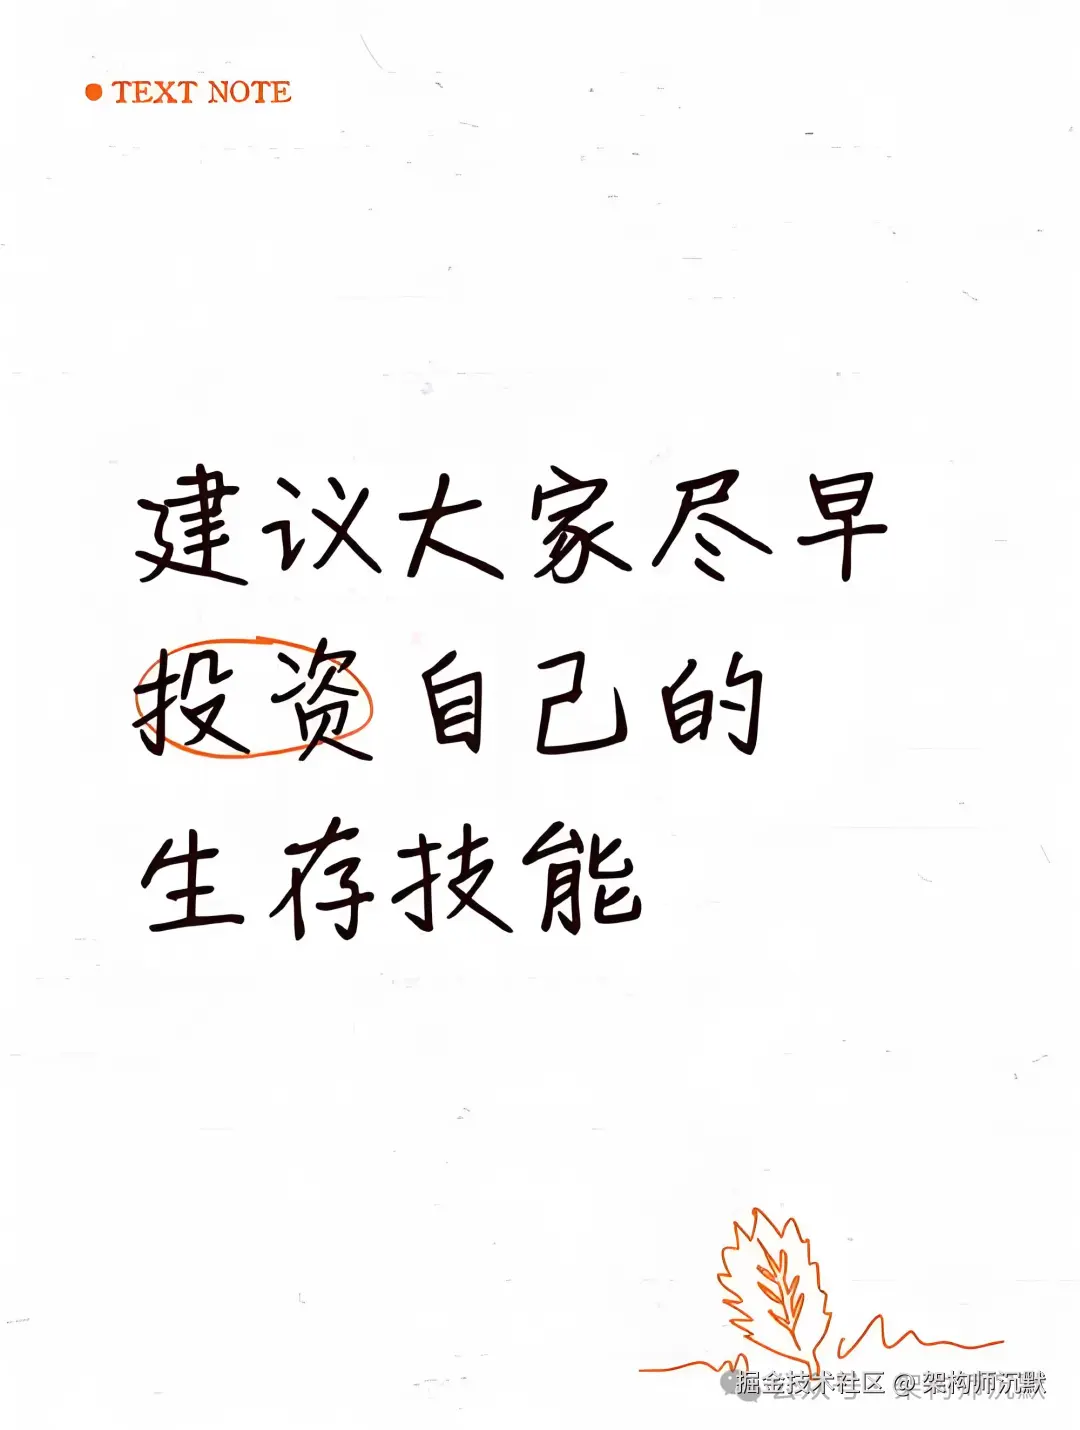 TEXT NOTE
建议大家尽早
投资自己的
生存技能
掘金技术社区 @ 架构师沉默